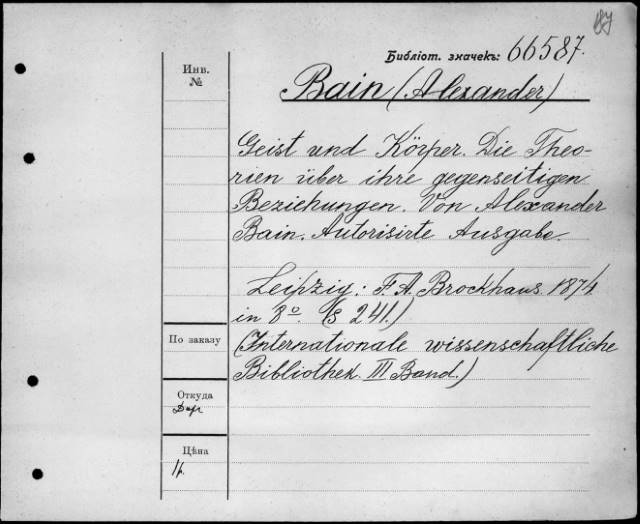 87
Библіот. значекъ: 66587.
Инв.
№
Bain (Alexander)
Geist und Körper. Die Theo-
rien über ihre gegenseitigen
Beziehungen. Von Alexander
Bain. Autorisirte Ausgabe.
Leipzig: F. A. Brockhaus. 1874.
in 8º. (S 241.)
По заказу
(Internationale wissenschaftliche
Bibliothek. III Band.)
Откуда
Дар
Цѣна